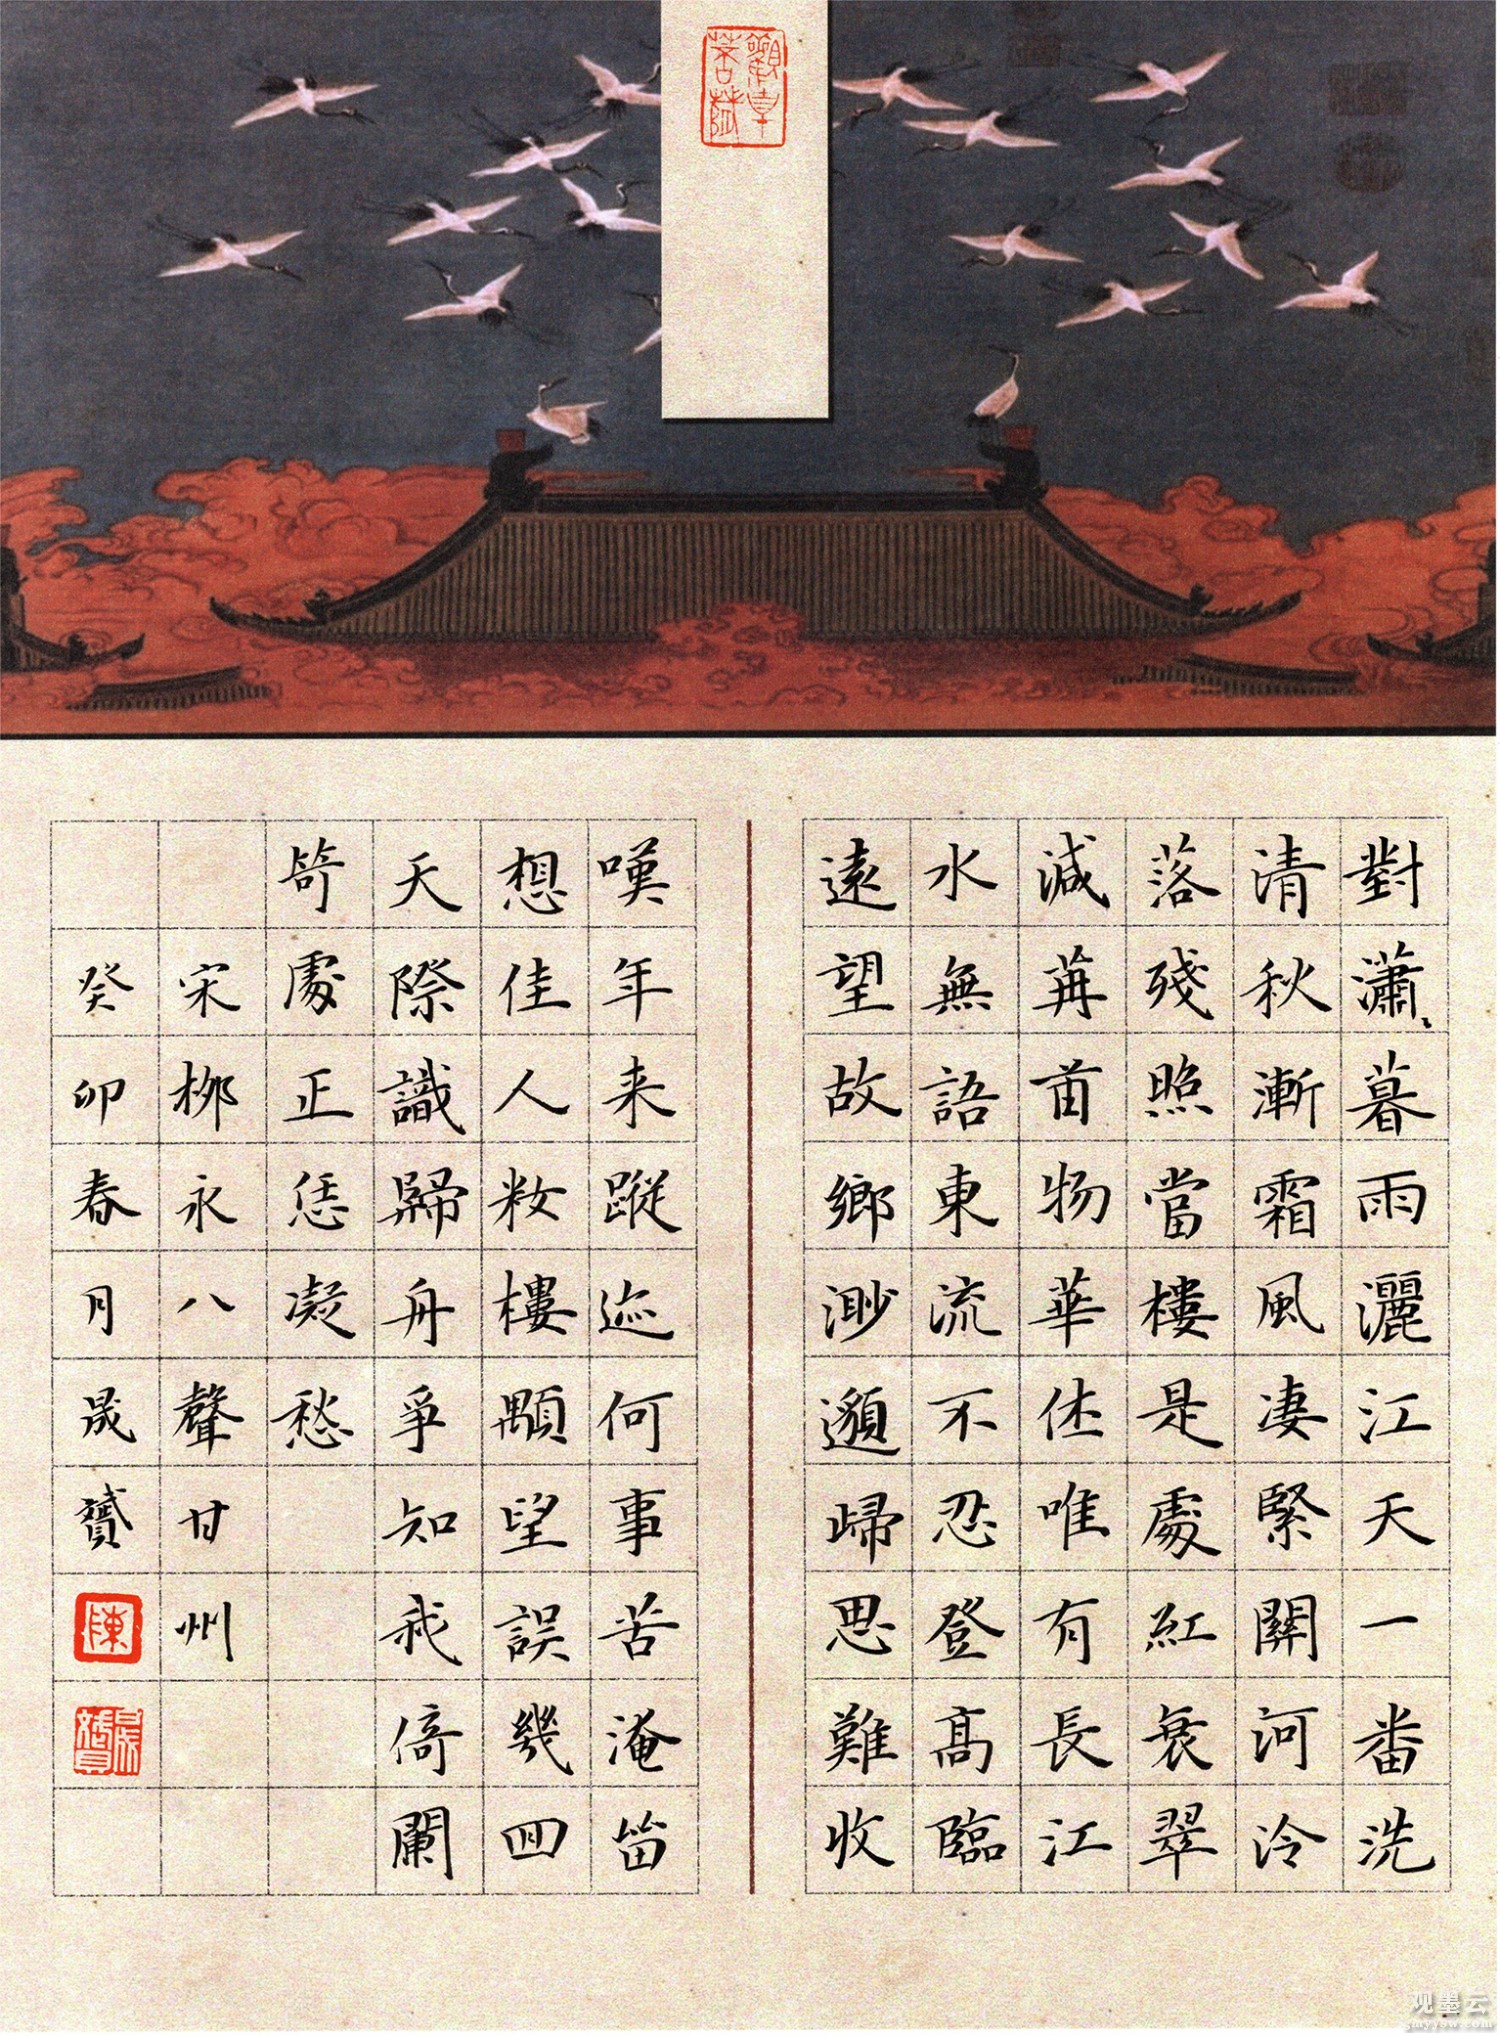 對瀟〻暮雨灑江天一番洗
清秋漸霜風凄緊關河冷
落殘照當樓是處紅衰翠
減苒苒物華休唯有長江
水無語東流不忍登高臨
遠望故鄉渺邈歸思難收
嘆年来蹤迹何事苦淹留
想佳人妝樓顒望誤幾回
天際識歸舟爭知我倚闌
箇處正恁凝愁
宋柳永八聲甘州
癸卯春月晟贇
陳
晟贇
观墨云
jmyysw.com